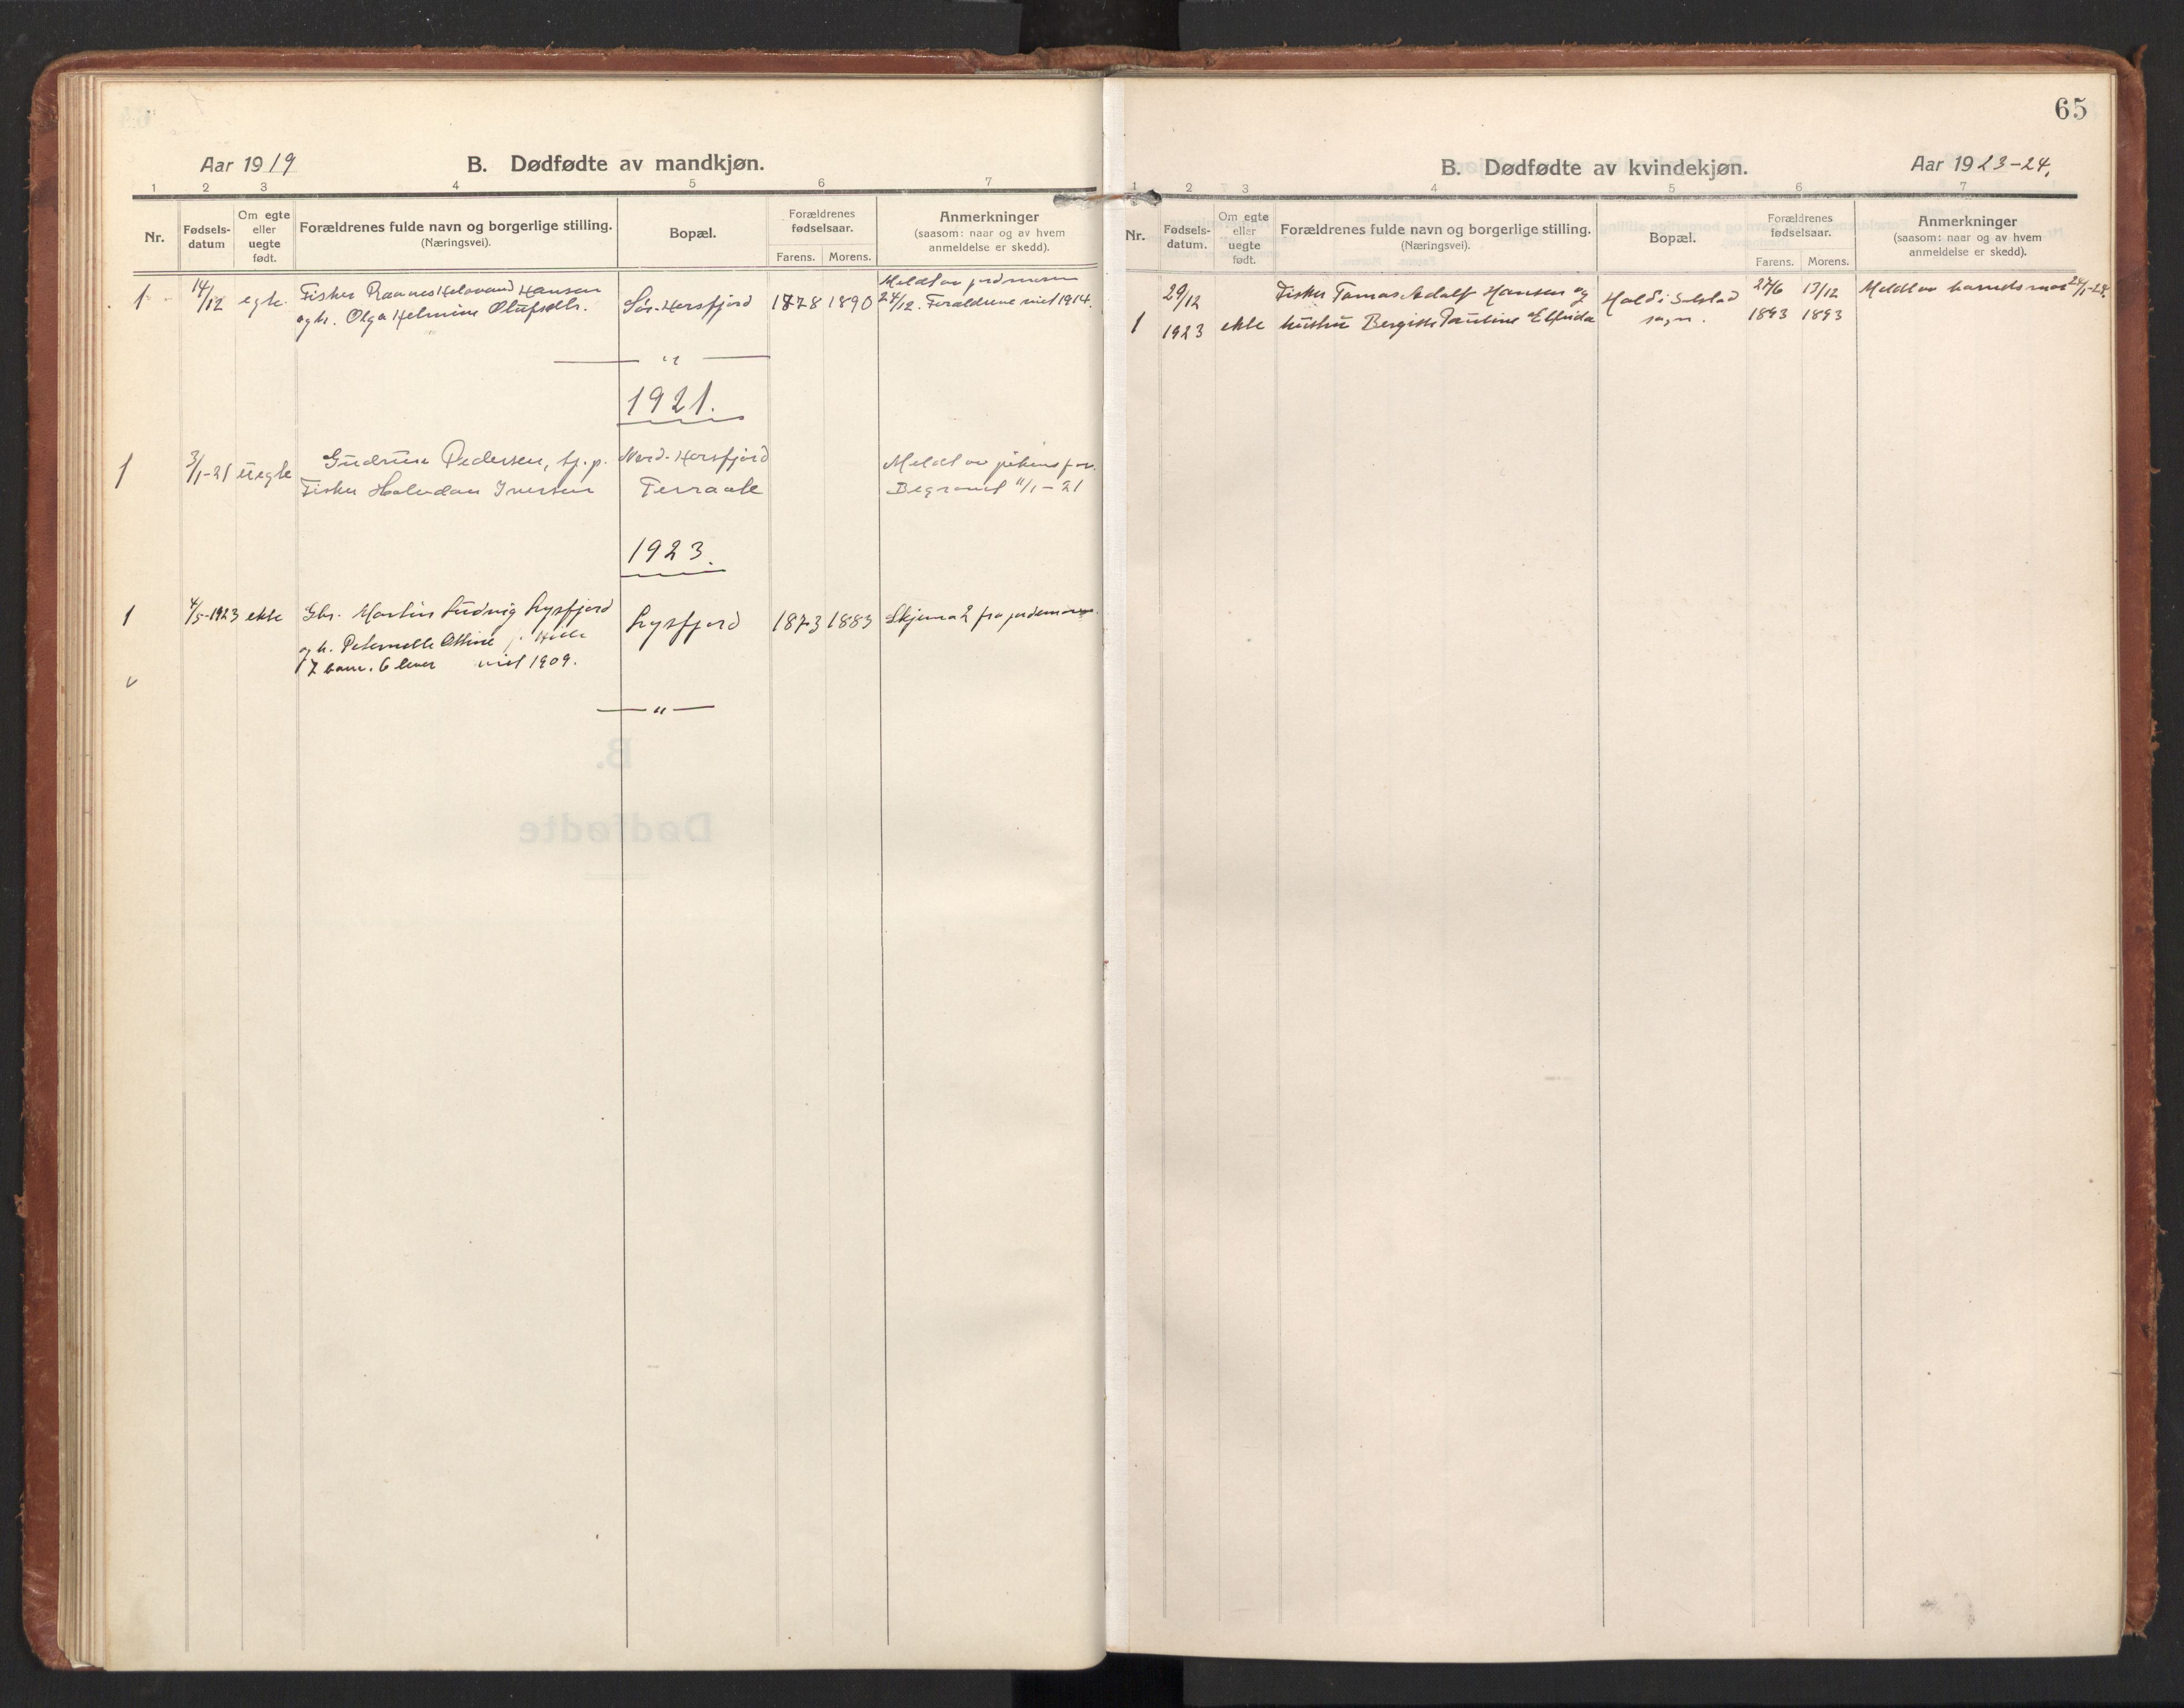 65
Aar 1919 B. Dødfødte av mandkjøn.
1 2 3 4 5 6 7
Nr. Fødsels-datum Om egte eller uegte født. Forældrenes fulde navn og borgerlige stilling. (Næringsvei). Bopæl. Forældrenes fødselsaar. Farens. Morens. Anmerkninger (saasom: naar og av hvem anmeldelse er skedd).
1 14/12 egte. Fisker Hansen Sør-Horsfjord 1878 1890 Meldt av jordmoren
og h. Olga Helmine Olufsdtr. 24/12. Forældrene viet 1914.
— " —
1921.
1 3/1-21 uegte Gudrun Pedersen, tj. p. Nord-Horsfjord Meldt av pikens far.
Fisker Halvdan Iversen Terraak Begravet 11/1-21
1923.
1 4/5-1923 ekte Gbr. Martin Ludvig Lysfjord Lysfjord 1873 1883 Skjema 2 fra jordemoren.
og h. Peternelle f.
7 barn. 6 lever viet 1909.
— " —
B. Dødfødte av kvindekjøn. Aar 1923-24.
1 2 3 4 5 6 7
Nr. Fødsels-datum. Om egte eller uegte født. Forældrenes fulde navn og borgerlige stilling. (Næringsvei). Bopæl. Forældrenes fødselsaar. Farens. Morens. Anmerkninger (saasom: naar og av hvem anmeldelse er skedd).
29/12 Fisker Tomas Adolf Hansen og Hald i Solstad 27/6 13/12 Meldt av barnets mor 24/1-24.
1 1923 ekte hustru Pauline Elfrida sogn. 1893 1893